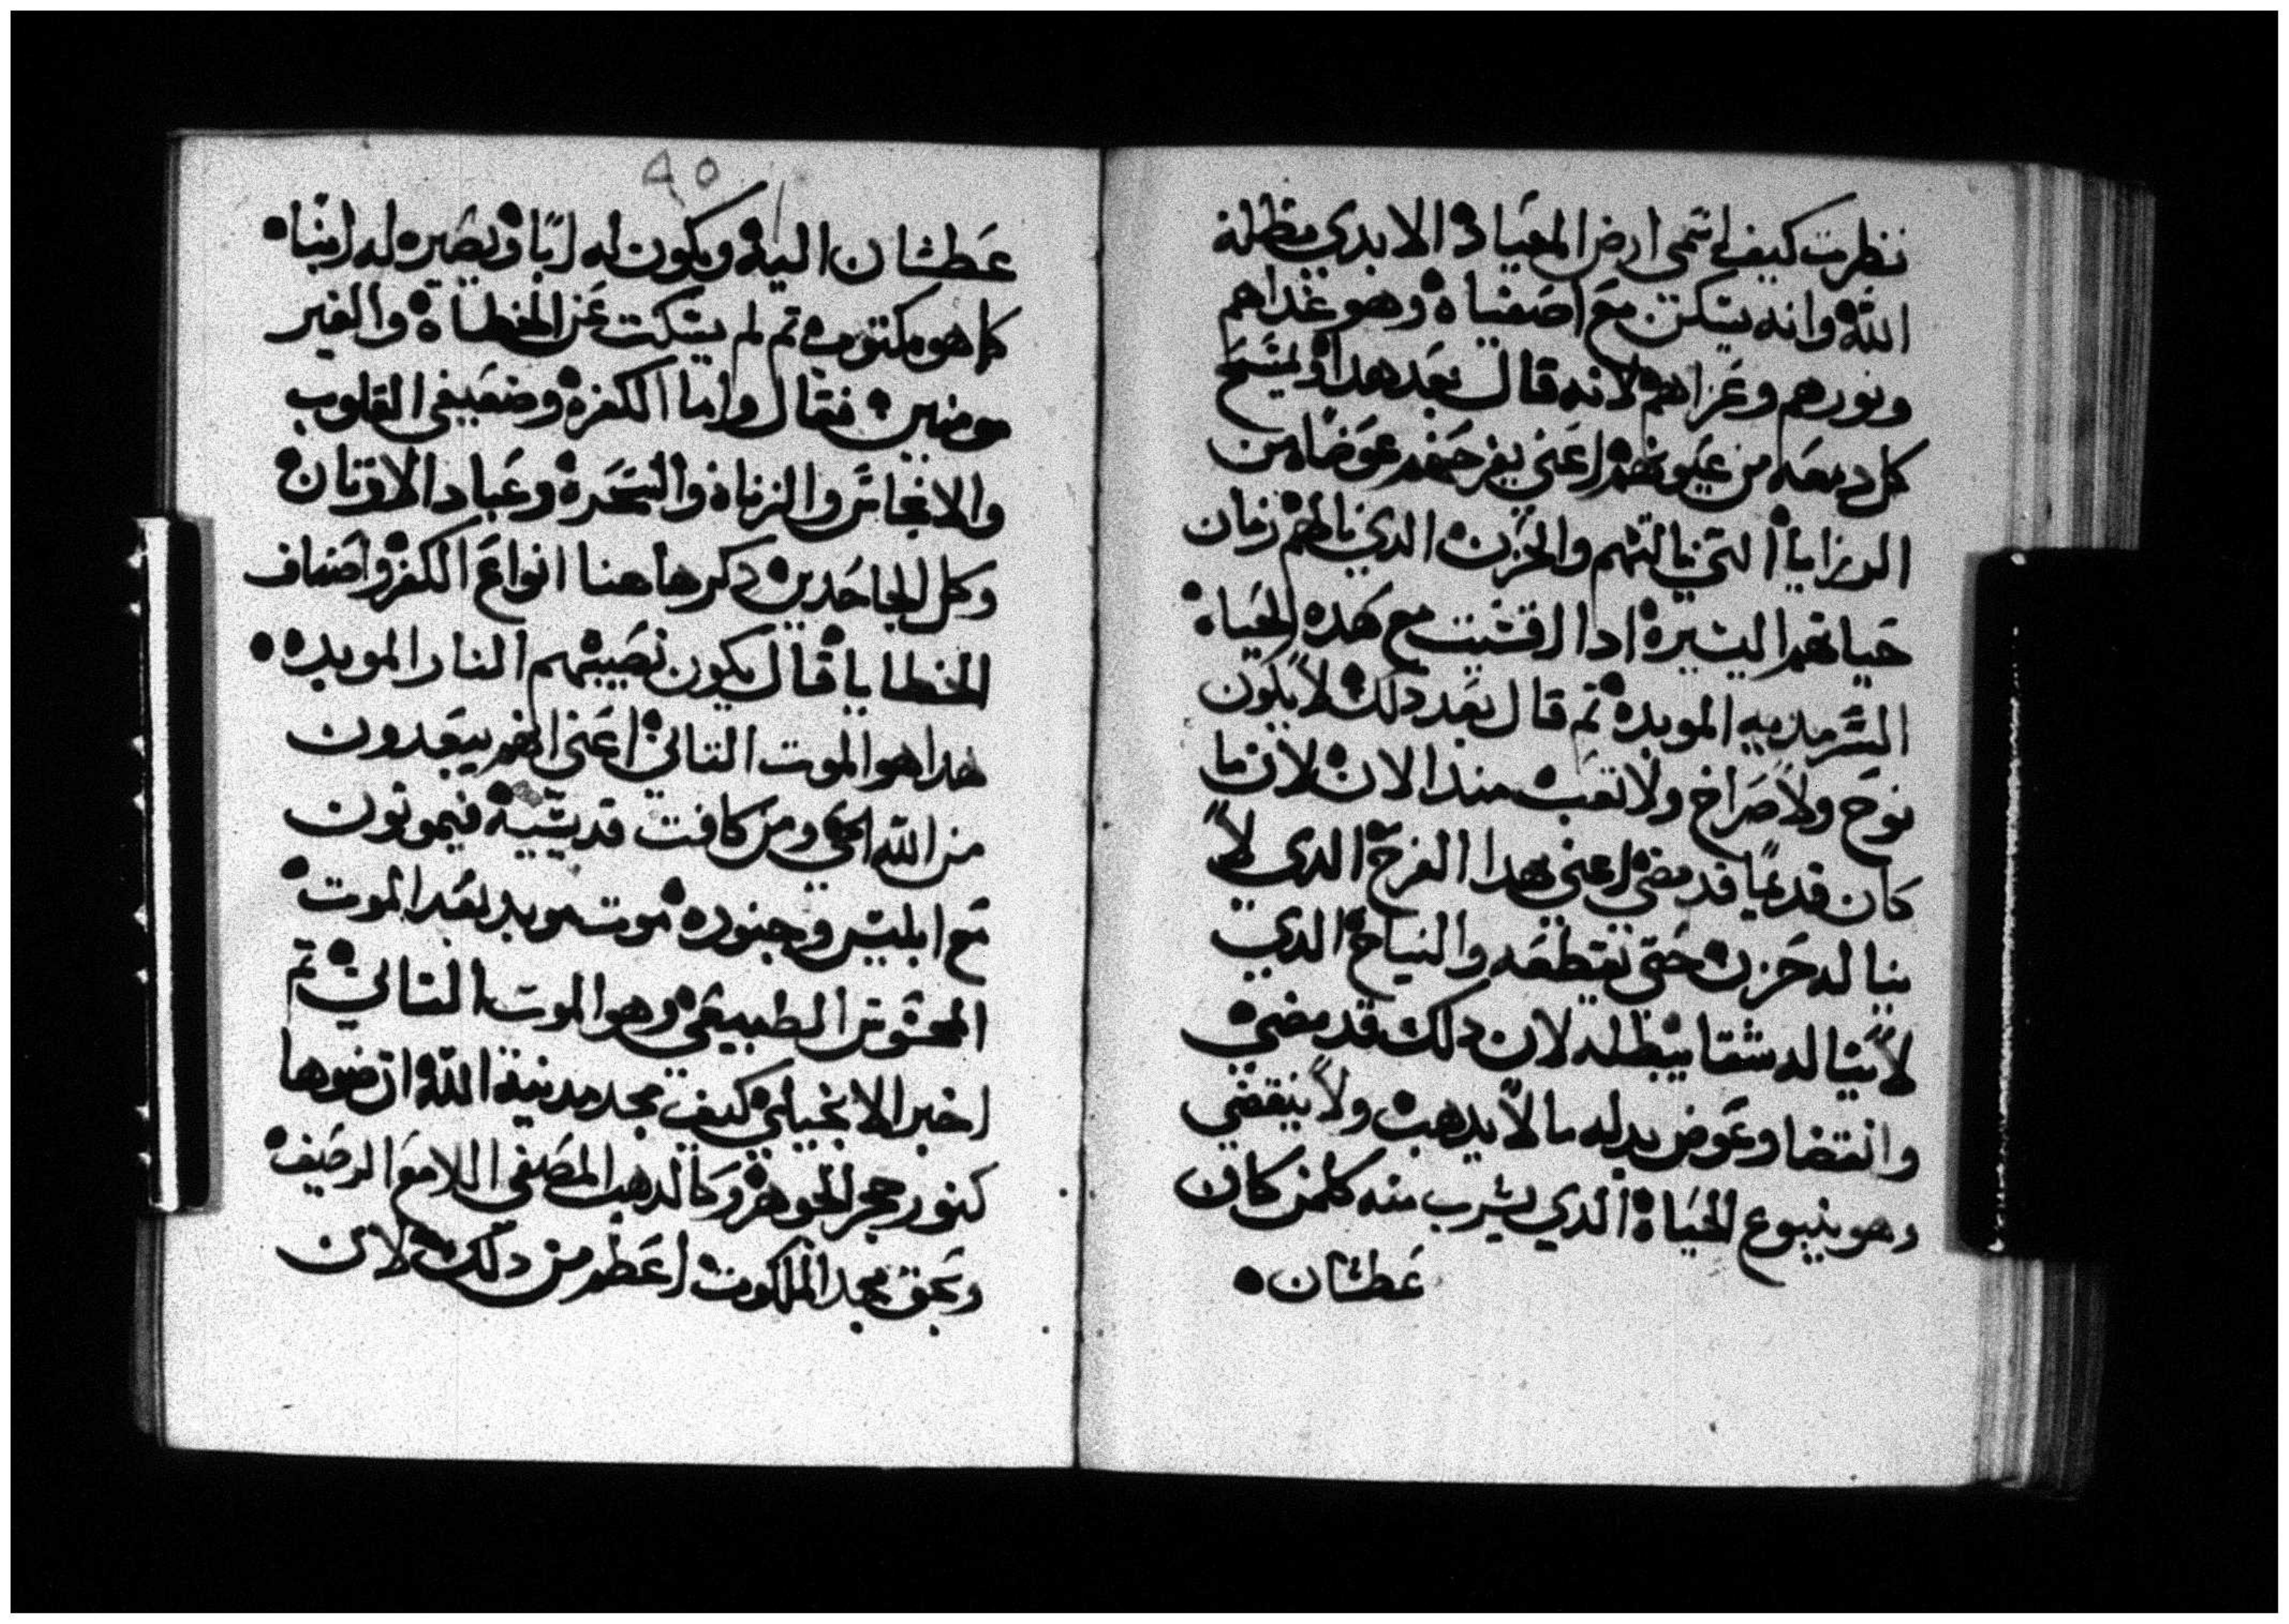 نظرت كيف اسمي ارض الميعاد الابدي مظلة
الله وانه يسكن مع اصفياه وهو غداهم
ونورهم وعزاهم لانه قال بعد هدا وليمسح
كل دمعه من عيونهم اعني يفرحهم عوضا من
الرزايا التي نالتهم والحزن الدي نالهم زمان
حياتهم اليسيره ادا اقسيت مع هده الحياه
السرمديه الموبده تم قال بعد دلك لا يكون
نوح ولا صراخ ولا تعب مند الان لان ما
كان قديما قد مضي اعني بهدا الفرح الدي لا
يناله حزن حتي يقطعه والنياح الدي
لا يناله شقا يبطله لان دلك قد مضي
وانقضا وعوض بدله ما لا يدهب ولا ينقضي
وهو ينبوع الحياة الدي يشرب منه كلمن كان
عطشان
٤٥
عطشان اليه ويكون له ربا ويصير له ابنا
كما هو مكتوب تم لم يسكت عن الخطاة والغير
مومنين فقال واما الكفرة وضعيفي القلوب
والانجاس والزناة والسحرة وعباد الاوتان
وكل الجاحدين دكر هاهنا انواع الكفر واصناف
الخطايا قال يكون نصيبهم النار الموبده
هدا هو الموت التاني اعني انهم يبعدون
من الله الحي ومن كافت قديسيه فيموتون
مع ابليس وجنوده موت موبد بعد الموت
المحسوس الطبيعي وهو الموت التاني تم
اخبر الانجيلي كيف مجد مدينة الله ان ضوها
كنور حجر الجوهر وكالدهب المصفي اللامع الرصيف
وبحق مجد الملكوت اعظم من دلك لان